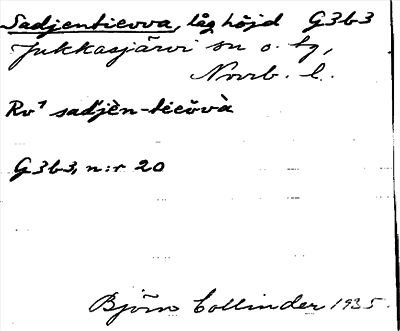 Sadjentieovva, låg höjd G3b3
Jukkasjärvi sn o. tg,
Norrb. l.
Rv¹ sadjèn-tìeòvà
G3b3, n:r 20
Björn Collinder 1935.